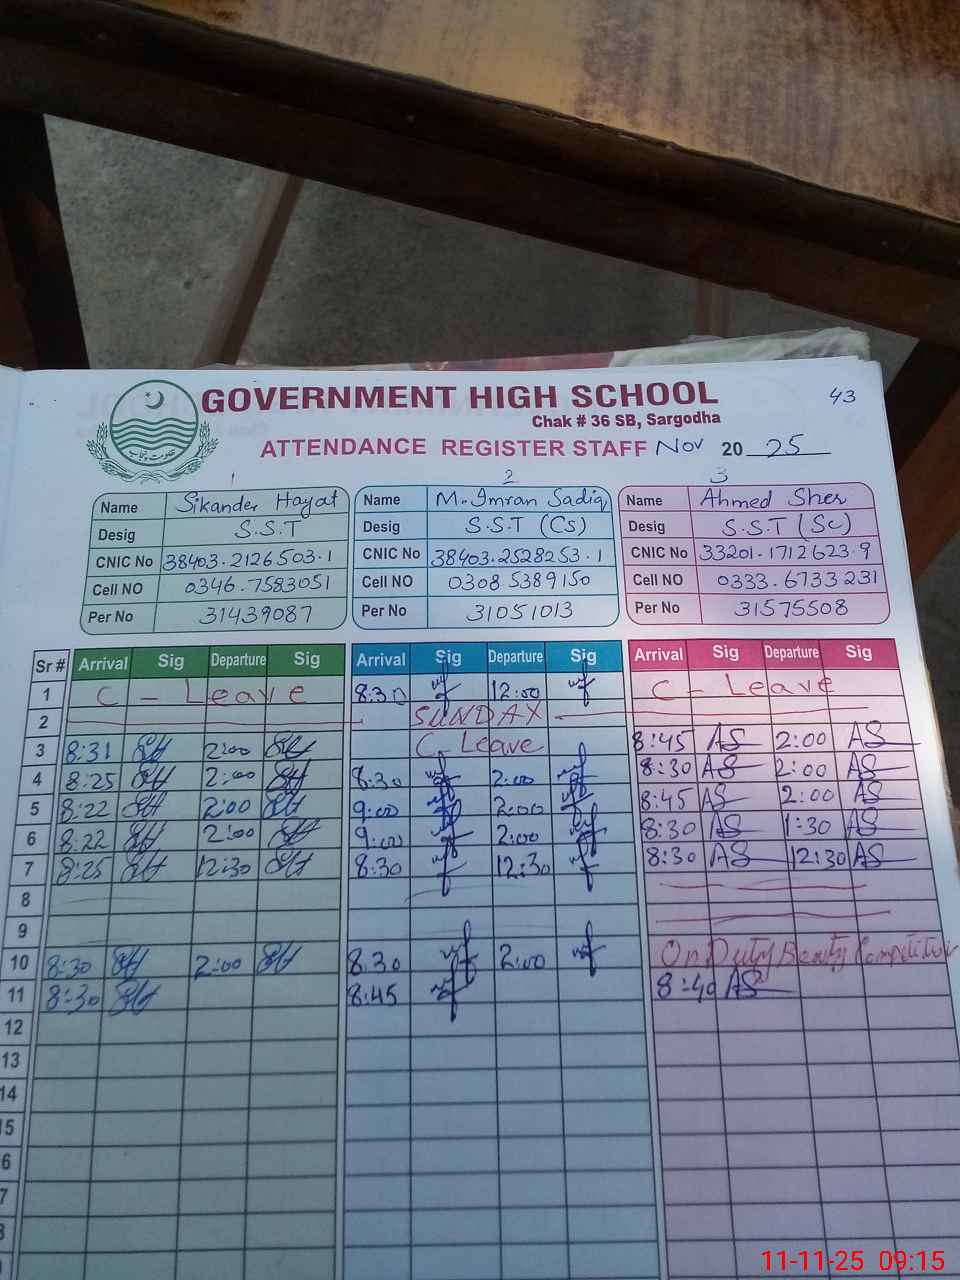 GOVERNMENT HIGH SCHOOL 43
Chak # 36 SB, Sargodha
ATTENDANCE REGISTER STAFF Nov 20 25
حکومت پنجاب
1 2 3
Name Sikander Hayat Name M. Imran Sadiq Name Ahmed Sher
Desig S.S.T Desig S.S.T (Cs) Desig S.S.T (Sc)
CNIC No 38403.2126503.1 CNIC No 38403.2528253.1 CNIC No 33201.1712623.9
Cell NO 0346.7583051 Cell NO 0308 5389150 Cell NO 0333.6733231
Per No 31439087 Per No 31051013 Per No 31575508
Sr # Arrival Sig Departure Sig Arrival Sig Departure Sig Arrival Sig Departure Sig
1 C - Leave 8:30 12:00 C - Leave
2 SUNDAY
3 8:31 2:00 C - Leave 8:45 AS 2:00 AS
4 8:25 2:00 8:30 2:00 8:30 AS 2:00 AS
5 8:22 2:00 9:00 2:00 8:45 AS 2:00 AS
6 8:22 2:00 9:00 2:00 8:30 AS 1:30 AS
7 8:25 12:30 8:30 12:30 8:30 AS 12:30 AS
8
9
10 8:30 2:00 8.30 2:00 On Duty Competition
11 8:30 8:45 8:40 AS
12
13
14
15
6
7
8
11-11-25 09:15